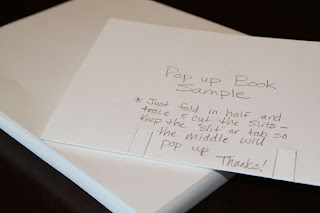 Pop up Book
Sample
* Just fold in half and
trace & cut the slits -
keep the "slit" or tab so
the middle will
pop up Thanks!